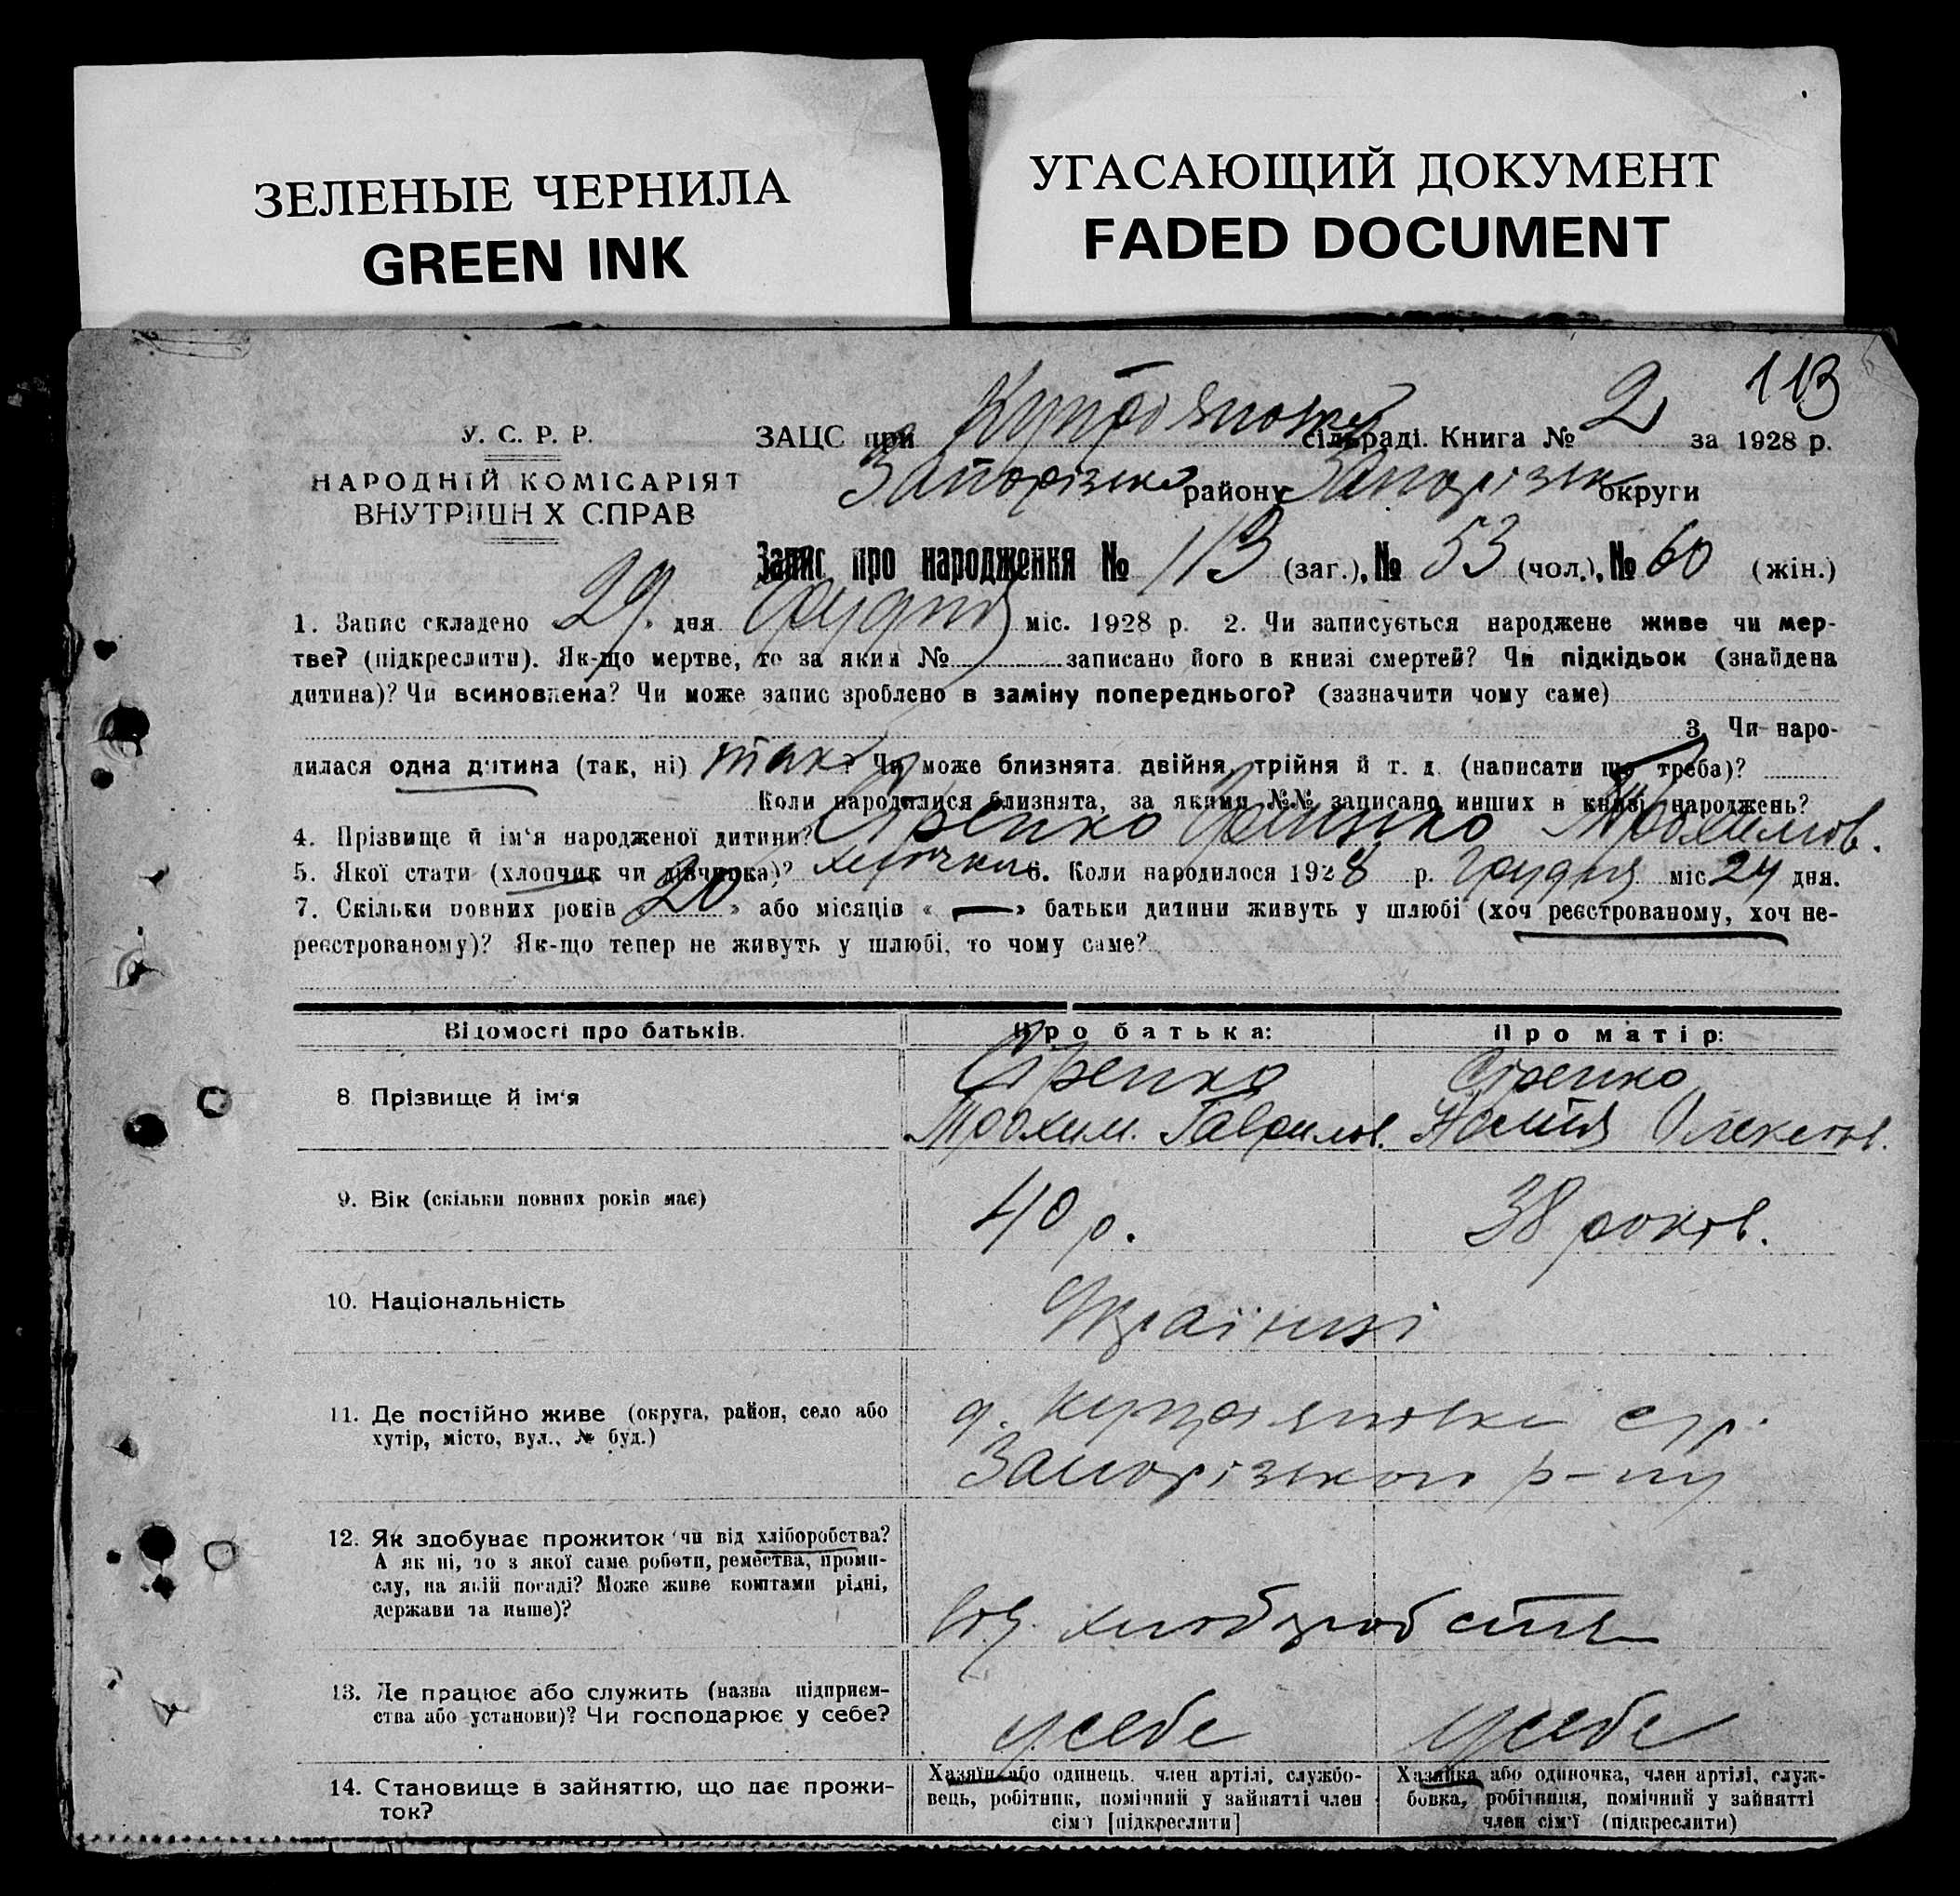 ЗЕЛЕНЫЕ ЧЕРНИЛА
GREEN INK
УГАСАЮЩИЙ ДОКУМЕНТ
FADED DOCUMENT
113
У. С. Р. Р.
НАРОДНІЙ КОМІСАРІЯТ
ВНУТРІШН Х СПРАВ
ЗАЦС при сільраді. Книга № 2 за 1928 р.
Запорізько району Запорізьк округи
Запис про народження № 113 (заг.), № 53 (чол.), № 60 (жін.)
1. Запис складено 29 дня Грудня міс. 1928 р. 2. Чи записується народжене живе чи мер-
тве? (підкреслити). Як-що мертве, то за яким № записано його в книзі смертей? Чи підкідьок (знайдена
дитина)? Чи всиновлена? Чи може запис зроблено в заміну попереднього? (зазначити чому саме)
3. Чи наро-
дилася одна дитина (так, ні) так. Чи може близнята двійня, трійня й т. д. (написати що треба)?
Коли народилися близнята, за якими №№ записано инших в книзі народжень?
4. Прізвище й ім'я народженої дитини? Сіренко Грицько Трохимов.
5. Якої стати (хлопчик чи дівчинка)? 6. Коли народилося 1928 р. Грудня міс 24 дня.
7. Скільки повних років 20 » або місяців « — » батьки дитини живуть у шлюбі (хоч реєстрованому, хоч не-
реєстрованому)? Як-що тепер не живуть у шлюбі, то чому саме?
Відомості про батьків.
Про батька:
Про матір:
8 Прізвище й ім'я
Сіренко
Трохим. Гаврилов.
Сіренко
Настя Олексіов.
9. Вік (скільки повних років має)
40 р.
38 років.
10. Національність
Українці
11. Де постійно живе (округа, район, село або
хутір, місто, вул., № буд.)
Запорізького р-ну
12. Як здобуває прожиток чи від хліборобства?
А як ні, то з якої саме роботи, ремества, промислу-
слу, на якій посаді? Може живе коштами рідні,
держави та инше)?
від. хліборобства
13. Де працює або служить (назва підприєм-
ства або установи)? Чи господарює у себе?
у себе
у себе
14. Становище в зайняттю, що дає прожи-
ток?
Хазяїн або одинець, член артілі, службо-
вець, робітник, помічний у зайнятті член
сім'ї [підкреслити]
Хазяйка або одиночка, член артілі, служ-
бовка, робітниця, помічний у зайнятті
член сім'ї (підкреслити)